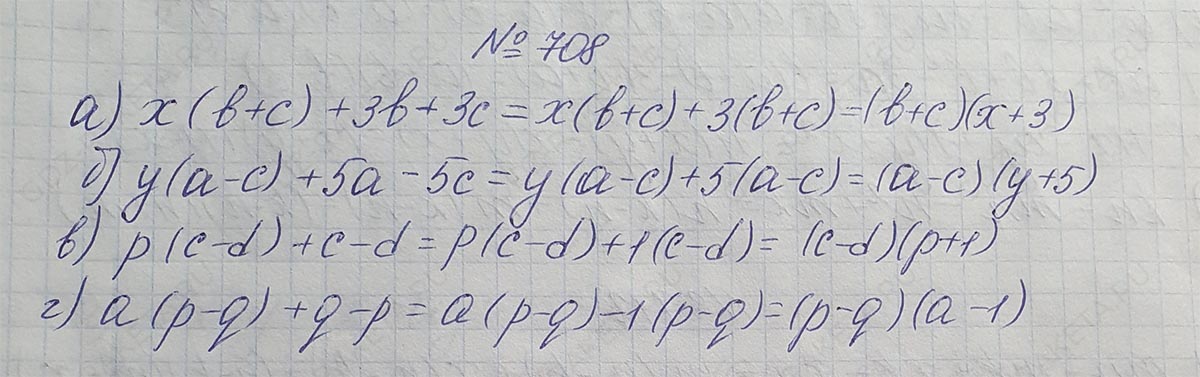 № 708
а) x(b+c)+3b+3c=x(b+c)+3(b+c)=(b+c)(x+3)
б) y(a-c)+5a-5c=y(a-c)+5(a-c)=(a-c)(y+5)
в) p(c-d)+c-d=p(c-d)+1(c-d)=(c-d)(p+1)
г) a(p-q)+q-p=a(p-q)-1(p-q)=(p-q)(a-1)